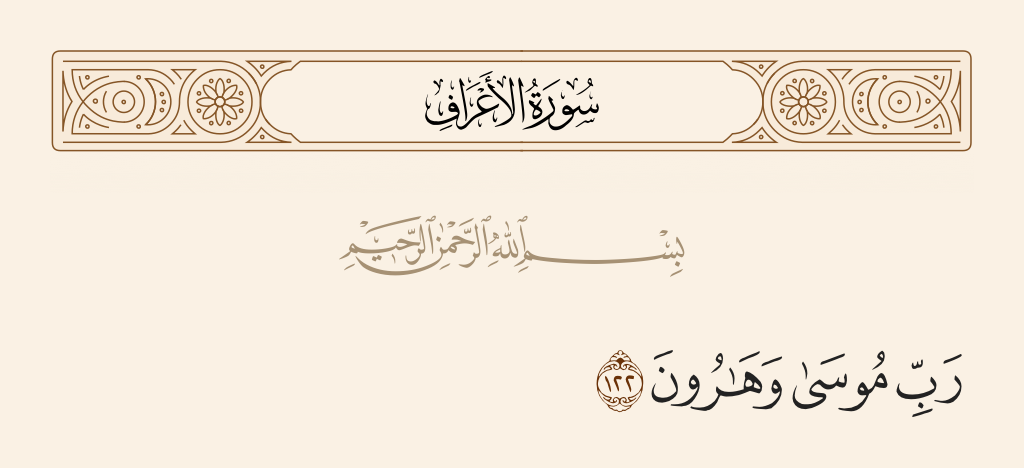 سُورَةُ الأَعْرَافِ
بِسْمِ ٱللَّهِ ٱلرَّحْمَٰنِ ٱلرَّحِيمِ
رَبِّ مُوسَىٰ وَهَـٰرُونَ ١٢٢